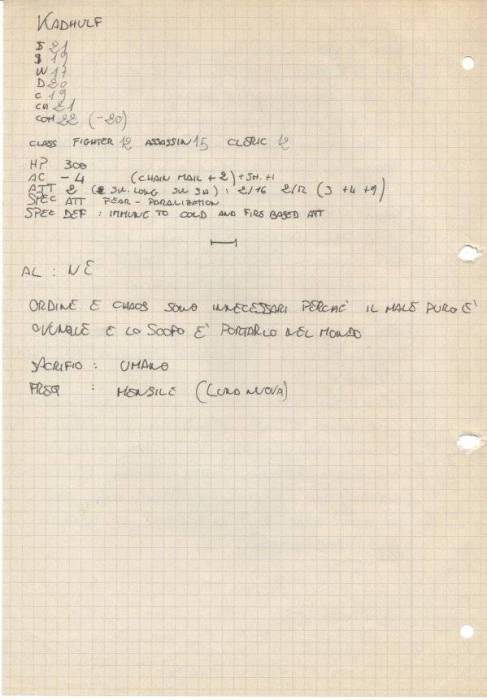 KADHULF
S 21
I 19
W 17
D 20
C 19
CH 21
COM 22 (-20)
CLASS FIGHTER 12 ASSASSIN 15 CLERIC 12
HP 300
AC -4 (CHAIN MAIL +2) + SH. +1
ATT 2 (SW. LONG SW SH) : 2/16 2/12 (3 +4 +9)
SPEC ATT FEAR - PARALIZATION
SPEC DEF : IMMUNE TO COLD AND FIRE BASED ATT
AL : NE
ORDINE E CHAOS SONO INNECESSARI PERCHÈ IL MALE PURO E'
OVUNQUE E LO SCOPO E' PORTARLO NEL MONDO
SACRIFIO : UMANO
FREQ : MENSILE (LUNA NUOVA)